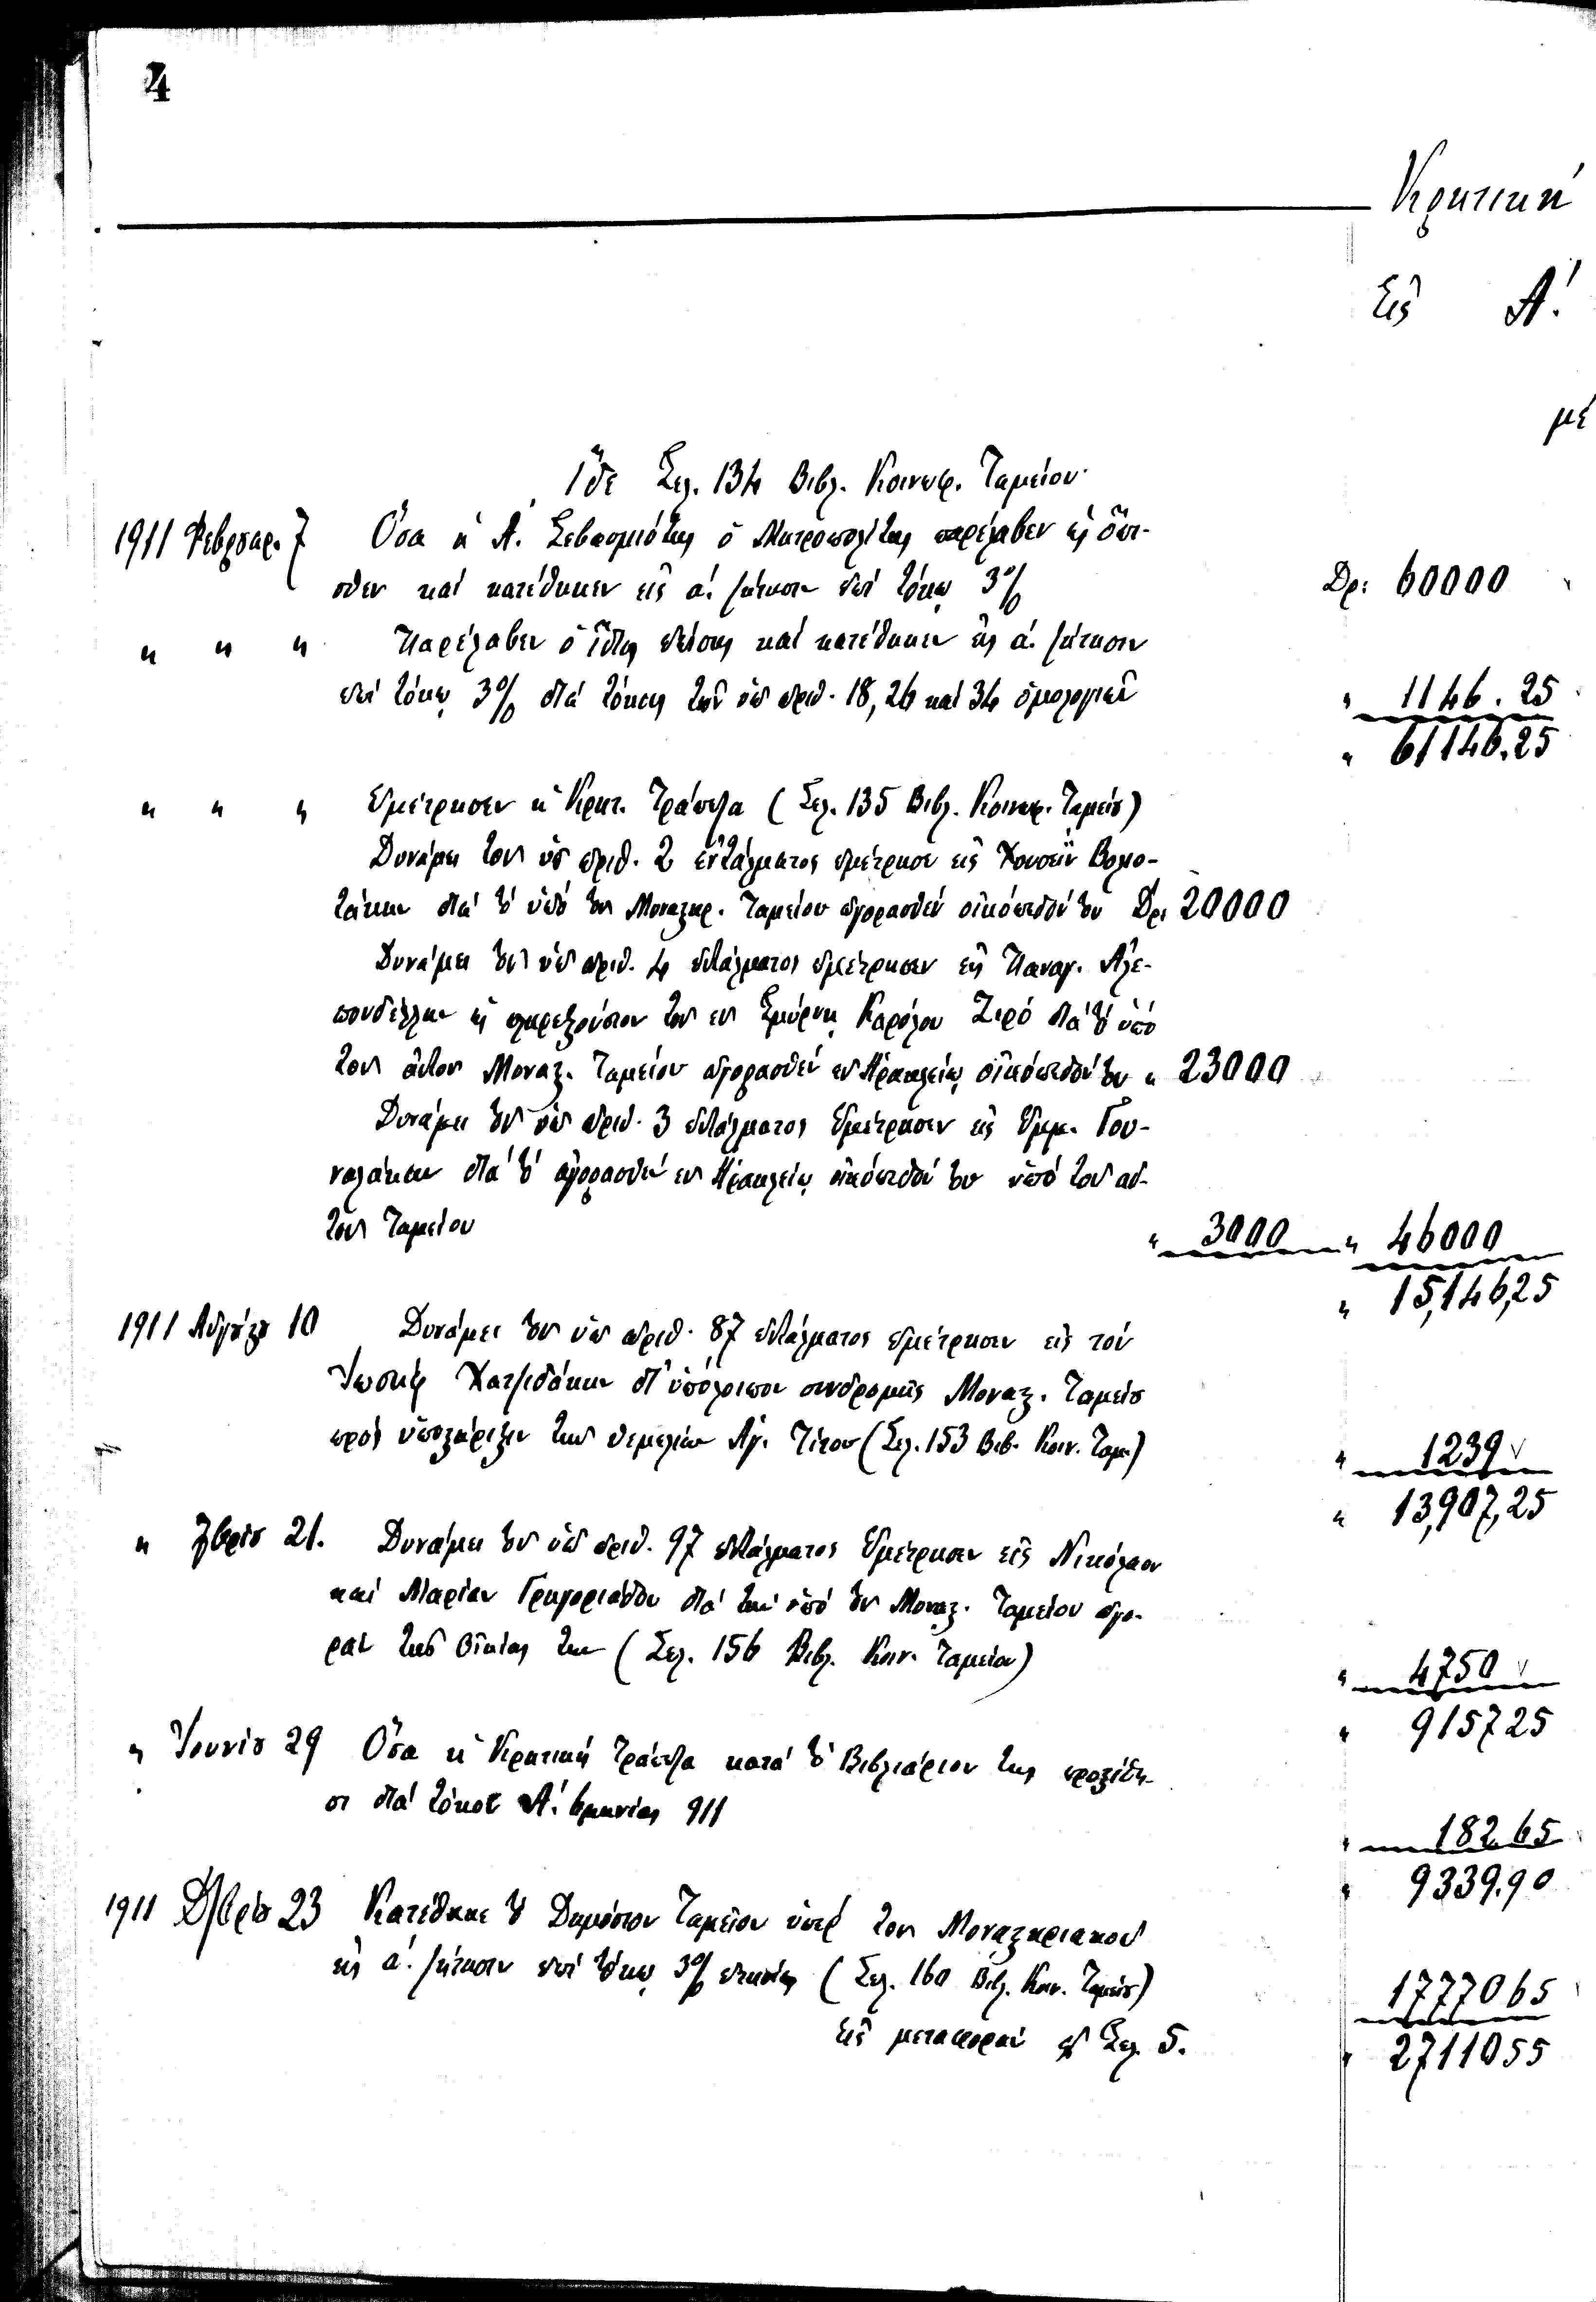 4
Κρητική
Εἰς Α΄.
μέ
Ἴδε Σελ. 134 Βιβλ. Κοινωφ. Ταμείου
1911 Φεβρουαρ. 7 Ὅσα ἡ Α. Σεβασμιότης ὁ Μητροπολίτης παρέλαβεν
καί κατέθηκεν εἰς ά. ζήτησιν ἐπί τόκῳ 3% Δρ: 60000
" " " Παρέλαβεν ὁ ἴδιος ἐπίσης καί κατέθηκεν εἰς ά. ζήτησιν
ἐπί τόκῳ 3% διά τόκους τῶν ὑπ ἀριθ. 18, 26 καί 34 ὁμολογιῶν " 1146.25
" 61146.25
" " " Ἐμέτρησεν ἡ Κρητ. Τράπεζα (Σελ. 135 Βιβλ. Κοινωφ. Ταμείου)
Δυνάμει τοῦ ὑπ ἀριθ. 2 ἐντάλματος ἐμέτρησε εἰς Χουσεΐν Βολιο-
τάκην διά τό ὑπό τοῦ Μοναχικ. Ταμείου ἀγορασθέν οἰκόπεδόν του Δρ: 20000
Δυνάμει τοῦ ὑπ ἀριθ. 4 ἐντάλματος ἐμέτρησεν εἰς Παναγ. Αλε-
πουδέλλην ὡς πληρεξούσιον τοῦ ἐν Σμύρνῃ Καρόλου Ζιρό διά τό ὑπό
τοῦ αὐτοῦ Μοναχ. Ταμείου ἀγορασθέν ἐν Ηρακλείῳ οἰκόπεδόν του " 23000
Δυνάμει τοῦ ὑπ ἀριθ. 3 ἐντάλματος Ἐμέτρησεν εἰς Ἐμμ. Γου-
ναλάκην διά τό ἀγορασθέν ἐν Ηρακλείῳ οἰκόπεδόν του ὑπό τοῦ αὐ-
τοῦ Ταμείου " 3000 " 46000
" 15,146,25
1911 Αὐγούστου 10 Δυνάμει τοῦ ὑπ ἀριθ. 87 ἐντάλματος ἐμέτρησεν εἰς τόν
Ἰωσήφ Χατζιδάκην δι' ὑπόλοιπον συνδρομῆς Μοναχ. Ταμείου
πρός ὑποστήριξιν τῶν θεμελίων Αγ. Τίτου (Σελ. 153 Βιβ. Κοιν. Ταμ.) " 1239
" 13,907,25
" 7βρίου 21. Δυνάμει τοῦ ὑπ ἀριθ. 97 ἐντάλματος Ἐμέτρησεν εἰς Νικόλαον
καί Μαρίαν Γρηγοριάδου διά τήν ὑπό τοῦ Μοναχ. Ταμείου ἀγο-
ράν τῆς οἰκίας των (Σελ. 156 Βιβλ. Κοιν. Ταμείου) " 4750
" 915725
" Ἰουνίου 29 Ὅσα ἡ Κρητική Τράπεζα κατά τό Βιβλιάριον της
διά τόκους Α΄. 6μηνίας 911 " 182.65
" 9339.90
1911 Δ/βρίου 23 Κατέθηκε τό Δημόσιον Ταμεῖον ὑπέρ τοῦ Μοναστηριακοῦ
εἰς ά. ζήτησιν ἐπί τόκῳ 3% ἐτησίως (Σελ. 160 Βιβλ. Κοιν. Ταμείου) 1777065
Εἰς μεταφοράν Σελ. 5. " 2711055